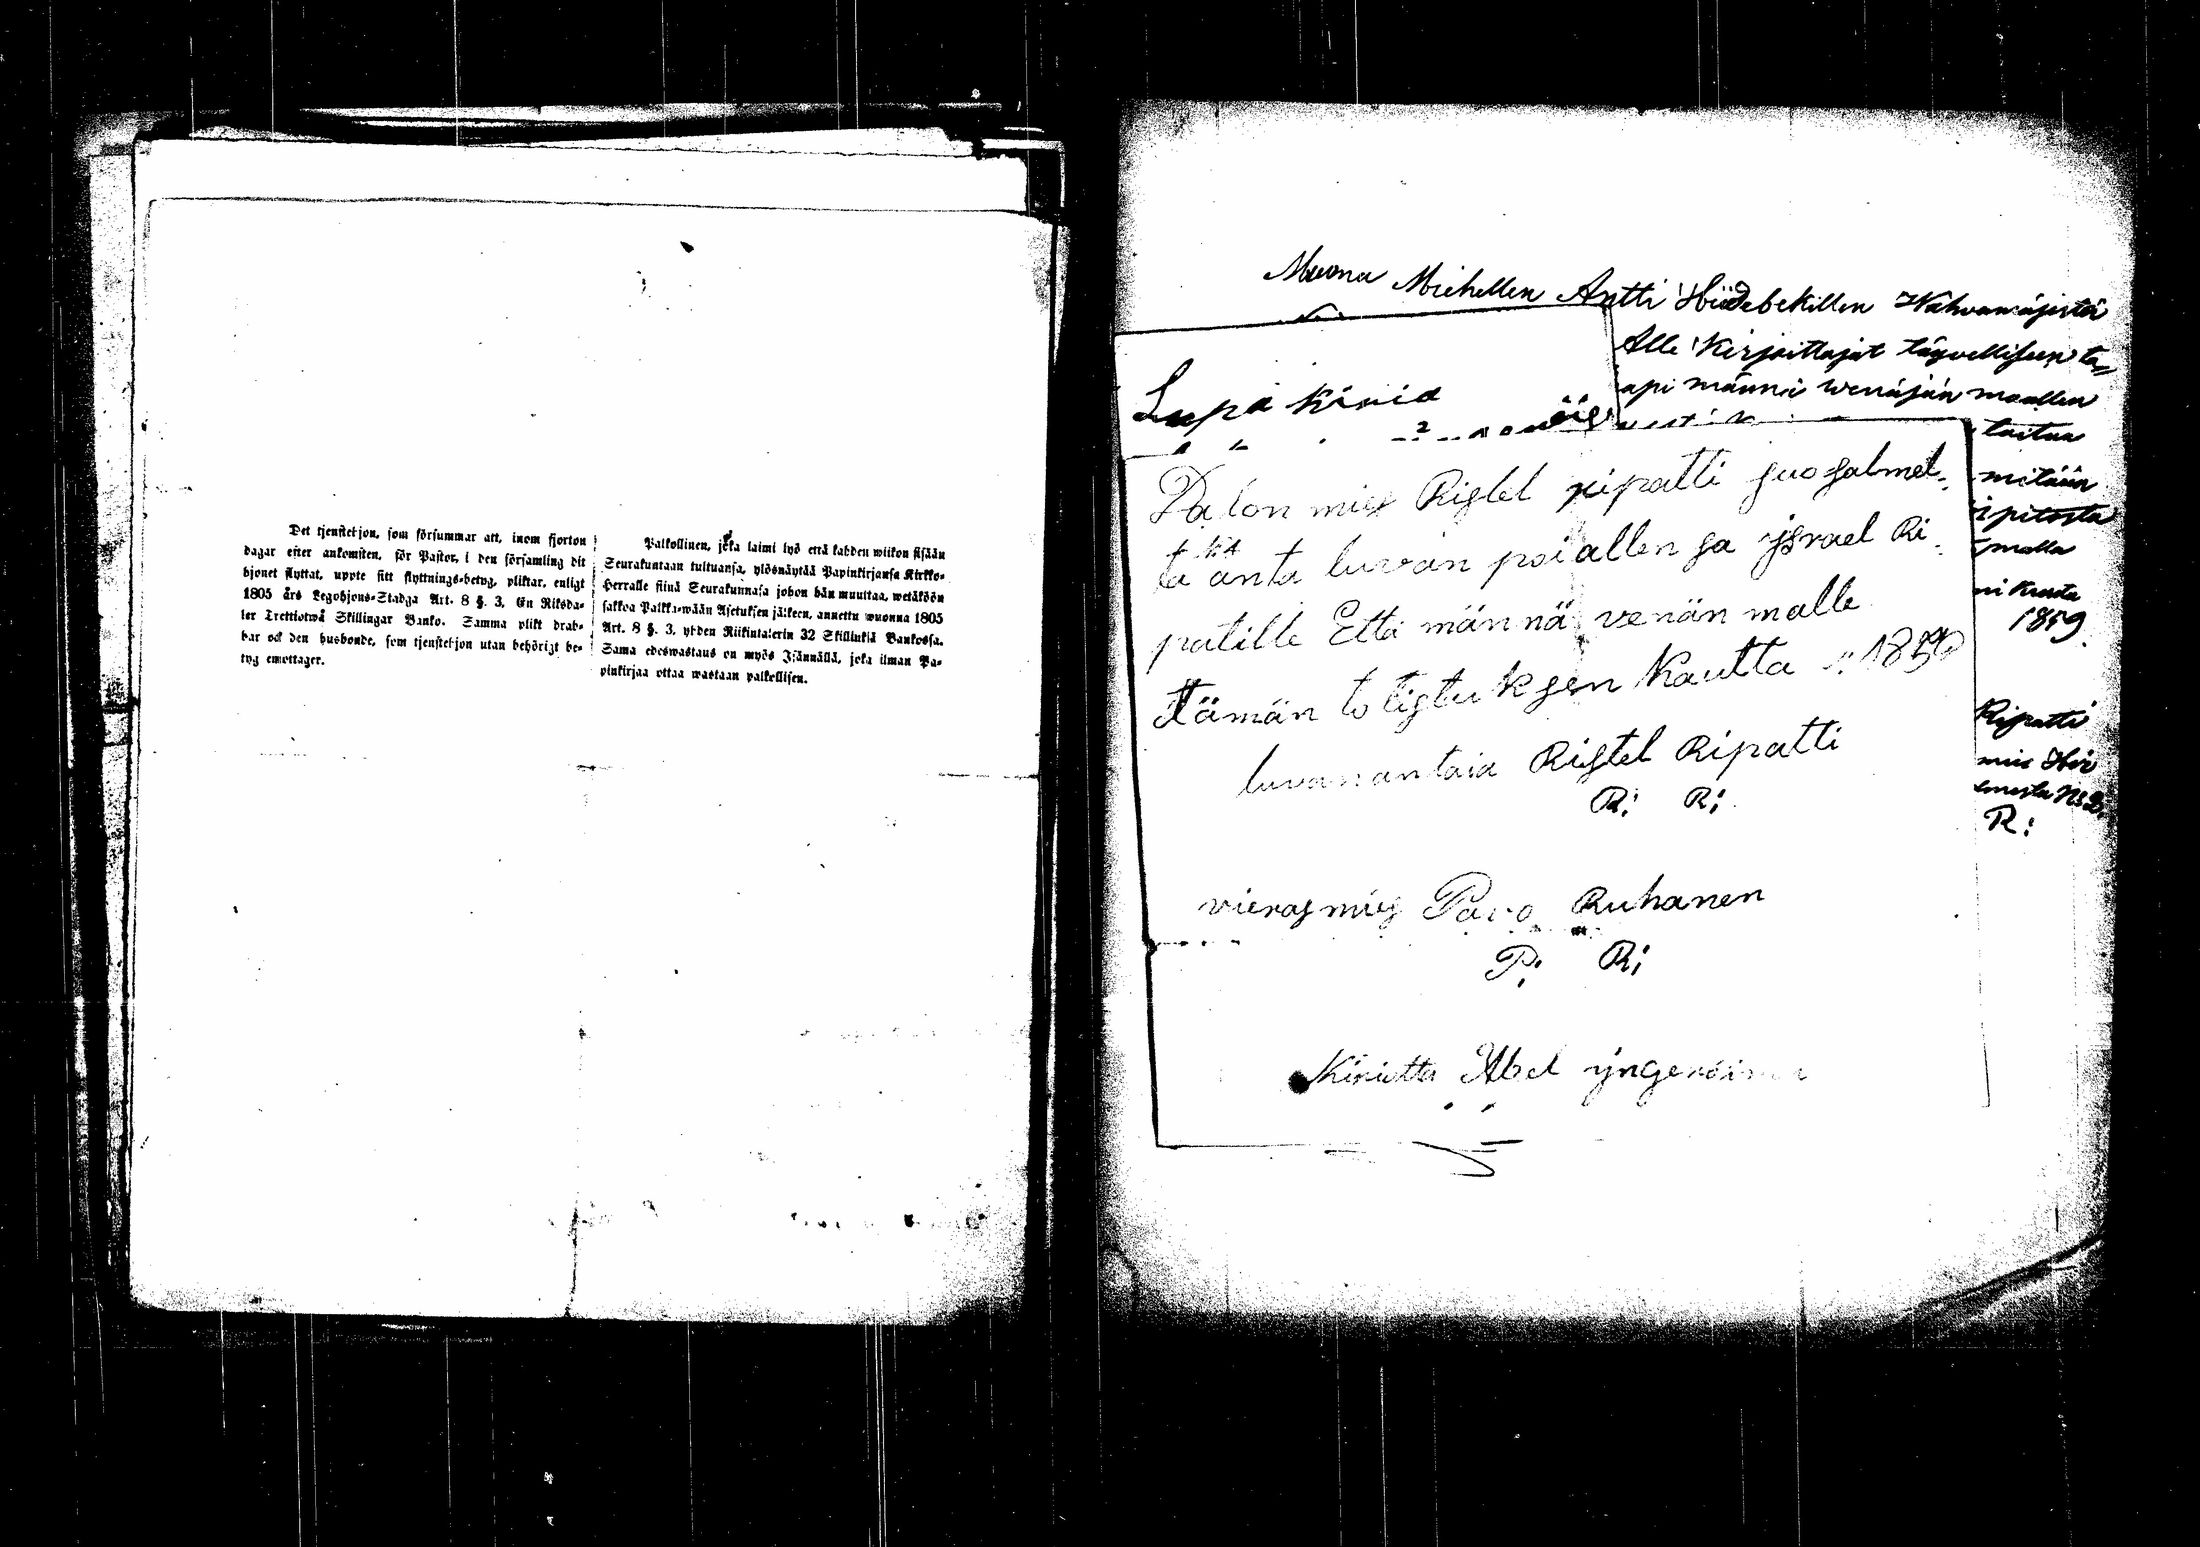 Det tjenstehjon, som försummar att, inom fjorton
dagar efter ankomsten, för Pastor, i den församling dit
hjonet flyttat, uppte sitt flyttnings-betyg, pliktar, enligt
1805 års Legohjons-Stadga Art. 8 §. 3, En Riksda-
ler Trettiotwå Skillingar Banko. Samma plikt drab-
bar ock den husbonde, som tjenstehjon utan behörigt be-
tyg emottager.
Palkollinen, joka laimi lyö että kahden wiikon sisään
Seurakuntaan tultuansa, ylösnäytää Papinkirjansa Kirkko-
Herralle siinä Seurakunnasa johon hän muuttaa, wetäköön
sakkoa Palkka-wään Asetuksen jälkeen, annettu wuonna 1805
Art. 8 §. 3, yhden Riikintalerin 32 Skillinkiä Bankossa.
Sama edeswastaus on myös Isännällä, joka ilman Pa-
pinkirjaa ottaa wastaan palkollisen.
Muona Miehellen Antti
Alle Kirjoittajat täyvellisen ta=
api männä wenäjän maallen
Lupa kiria
taitaa
mitään
malla
1859
Ripatti
R:
Talon mies Ristel ripatti suosalmel-
ta anta luvan poiallen sa ysrael Ri-
patille Että männä venän malle
tämän totistuksen kautta 1859
luvanantaia Ristel Ripatti
R: R:
vierasmies Pavo Ruhanen
P: R:
Kiriutta Abel